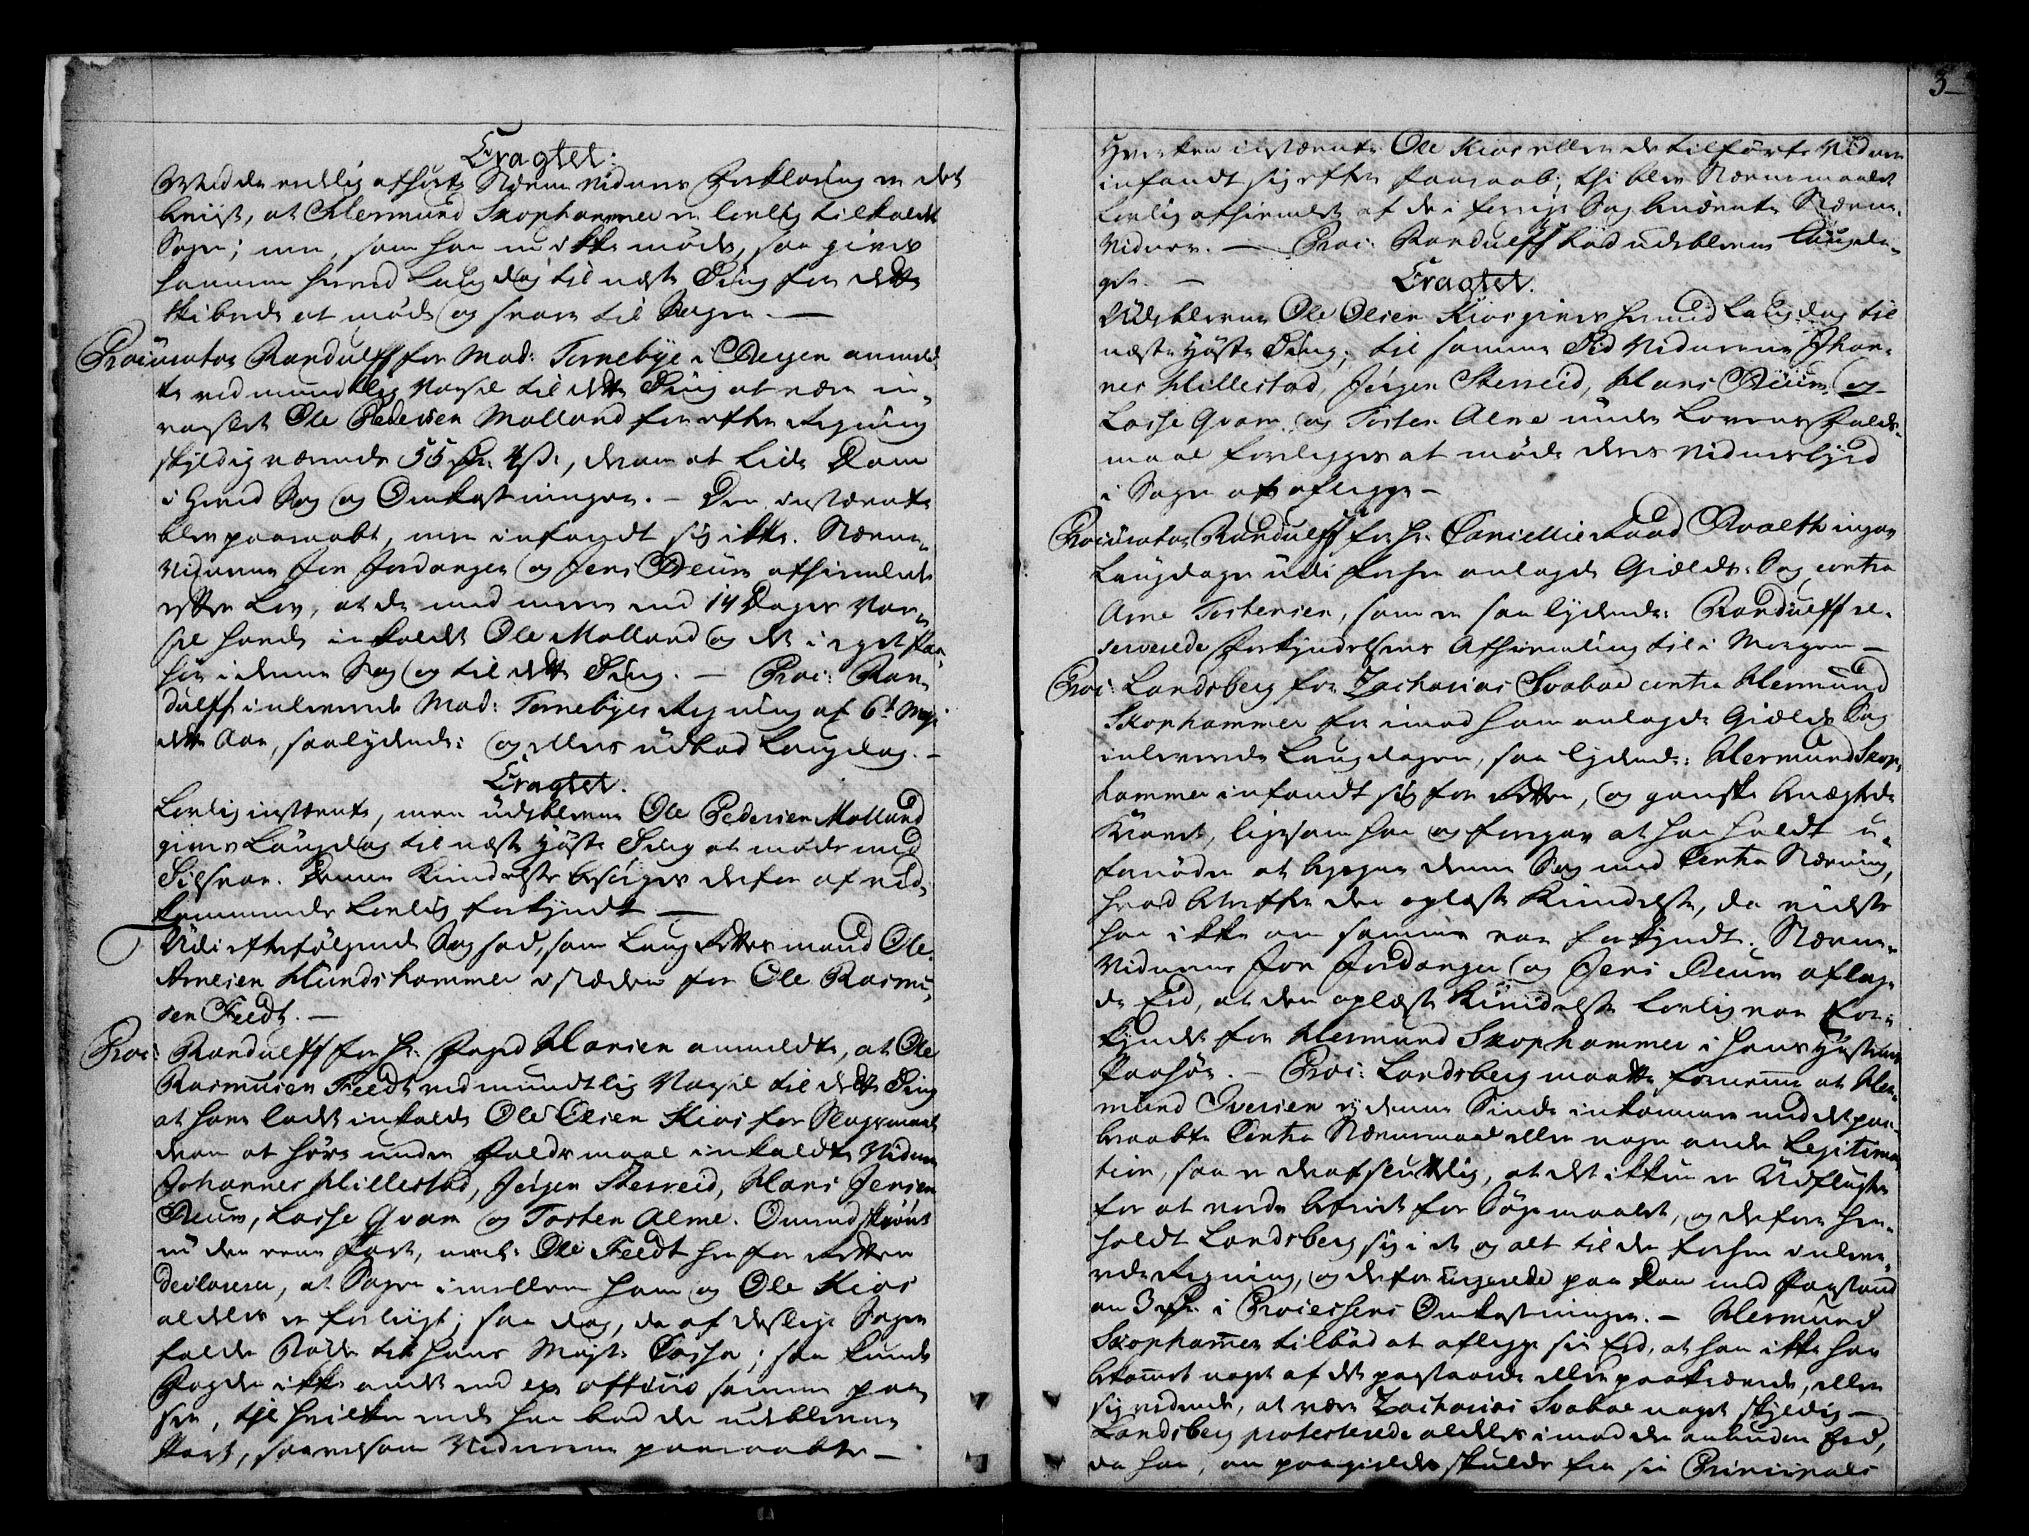 Eragtet:
Ved de endelig afhørte Stævne Vidners Forklaring er det
beviist, at Hermund Skophammer er lovlig tilkaldt
Sagen; men, som han nu ikke møder, saa gives
hammem hermed Laugdag til næste Ting for dette
Skibrede at møde og svare til Sagen. —
Procurator Randulff for Mad: Ternebye i Bergen anmeld-
te ved mundtlig Varsel til dette Ting at være ind-
varslet Ole Pedersen Molland for efter Regning
skyldig værende 55 rdr. 4 s., derom at lide Dom
i Hoved Sag og Omkostninger. — Den indstævnte
blev paaraabt, men indfandt sig ikke. Stævne-
Vidnerne Jon Jordanger og Jens Deum afhiemlede
efter Lov, at de med meere end 14 Dages Var-
sel havde indkaldt Ole Molland og det i eget paa-
hør i denne Sag og til dette Ting. — Proc: Ran-
dulff indleverede Mad: Ternebyes Regning af 6t May
dette Aar, saalydende: og ellers udbad Laugdag. —
Eragtet.
Lovlig indstævnte, men udeblevne Ole Pedersen Molland
gives Laugdag til næste Høste Ting at møde med
Tilsvar. Denne Kiendelse besørges derfor af ved-
kommende lovlig forkyndt —
Udi efterfølgende Sag sad, som Laug Rettes mand Ole
Arnesen Hundshammer i stæden for Ole Rasmu-
sen Feedt. —
Proc: Randulff for Hr. Foged Hansen anmeldte, at Ole
Rasmusen Feedt ved mundtlig Varsel til dette Ting
at have ladet indkalde Ole Olsen Kios for Slagsmaal
derom at høre under Faldsmaal indkaldte Vidner
Johannes Hillestad, Jørgen Sterreid, Hans Jensen
Deum, Lasse Qvam og Torsten Alme. Omendskiønt
nu den eene Part, neml: Ole Feedt her for Retten
declarerer, at Sagen imellem ham og Ole Kios
aldeles er forliigt; saa dog, da af deslige Sager
falder Bøder til Hans Mayts Cassa; saa kunde
Fogden ikke andet end ex officio samme paa-
see, til hvilken ende han bad de udeblevne
Part, saavelsom Vidnerne paaraabte —
3
Hverken indstævnte Ole Kios eller de tilførte Vidner
indfandt sig efter Paaraab; thi blev Stævnemaalet
lovlig afhiemlet af de i forrige Sag benævnte Stævne-
Vidner. — Proc: Randulff bad udeblevne Laugda-
ge. —
Eragtet.
Udeblevne Ole Olsen Kios gives hermed Laugdag til
næste Høste Ting; til samme Tid Vidnerne Johan-
nes Hillestad, Jørgen Sterreid, Hans Deum og
Lasse Qvam og Torsten Alme under Lovens Falds-
maal forelegges at møde deres Vidnesbyrd
i Sagen at aflegge —
Procurator Randulff for Hr. Cancellieraad Qvalthingar
Laugdagen udi forhen anlagde Gields Sag contra
Arne Torstensen, som er saa lydende: Randulff re-
serverede Forkyndelsens Afhiemling til i Morgen —
Proc: Landsberg for Zacharias Svaboe contra Hermund
Skophammer for imod ham anlagde Gields Sag
indleverede Laugdagen, saa lydende: Hermund Skop-
hammer indfandt sig for Retten, og ganske benægtede
Kravet, ligesom han og foregav at han holdt u-
fornøden at begegne denne Sag med Contra Stævning,
hvad betreffer den oplæste Kiendelse, da vidste
han ikke om samme var forkyndt. Stævne-
Vidnerne Jon Jordanger og Jens Deum aflag-
de Eed, at den oplæste Kiendelse lovlig var for-
kyndt for Hermund Skophammer i hans Hustrues
Paahør. — Proc: Landsberg maatte formeene at Her-
mund Iversen ey denne Sinde indkommer med det paa-
beraabte Contra Stævnemaal eller nogen anden Legitima-
tion, saa er deraf sluttelig, at det ikkun er Udflugter
for at vorde befriet for Søgemaalet, og derfor hen-
holdt Landsberg sig i et og alt til den forhen indleve-
rede Regning, og derfor urgerede paa Dom med Paastand
om 3 rdr. i Processens Omkostninger. — Hermund
Skophammer tilbød at aflegge sin Eed, at han ikke har
bekommet noget af det paastaaede eller paakrævede, eller
sig vidende, at være Zacharias Svaboe noget skyldig —
Landsberg protesterede aldeles imod den anbudne Eed,
da han, om paagieldes skulde fra sin Principals